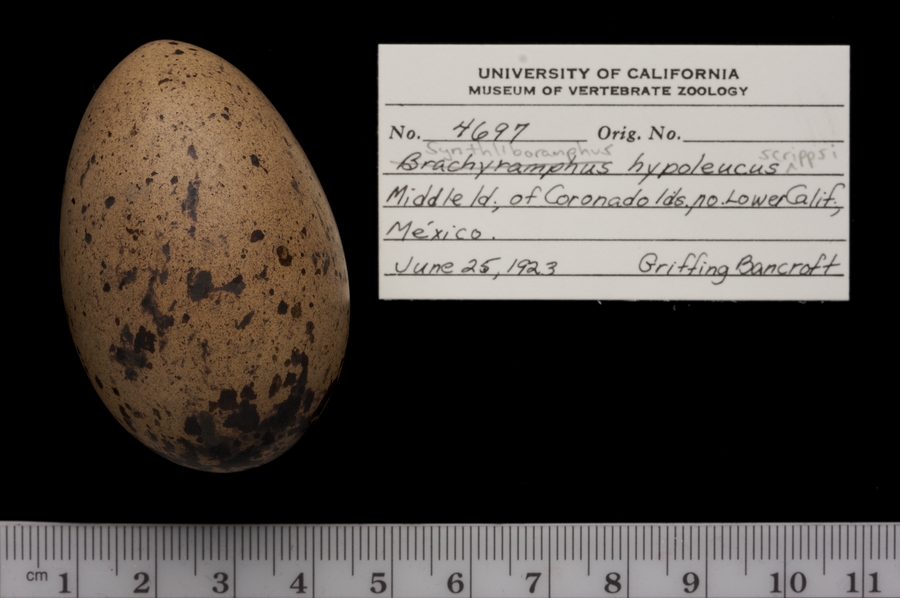 UNIVERSITY OF CALIFORNIA
MUSEUM OF VERTEBRATE ZOOLOGY
No. 4697 Orig. No.
Synthliboramphus scrippsi
Brachyramphus hypoleucus
Middle Id, of Coronado Ids, no. Lower Calif,
México.
June 25, 1923 Griffing Bancroft
cm 1 2 3 4 5 6 7 8 9 10 11